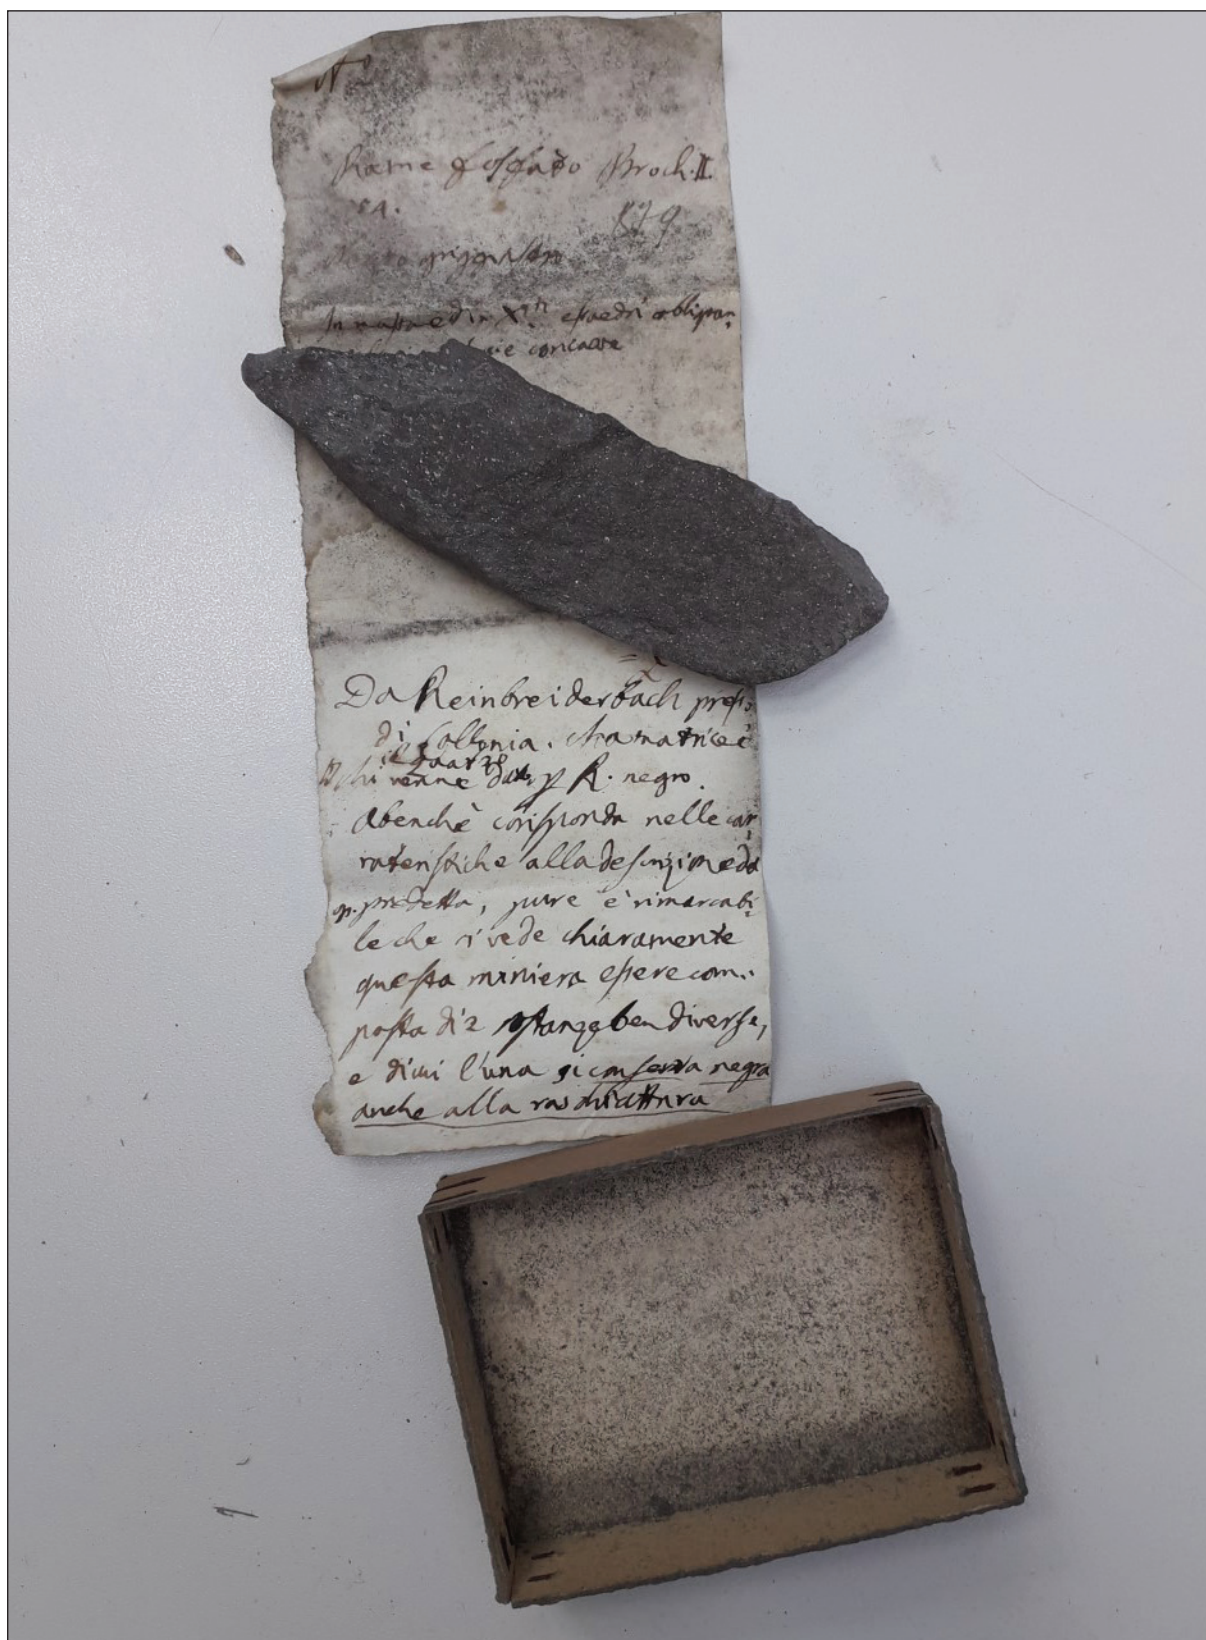 No
Rame fosfato Broch. II.
879
Negro
In massa ed in Xlli esaedri obliquan:
concave
Da Reinbreiderbach presso
di Collonia. la matrice è
il quarzo
Mi venne dato p R. negro.
Abenchè corisponda nelle car:
rateristiche alla descrizione da
predetta, pure è rimarcabi:
le che si vede chiaramente
questa miniera essere com:
posta di 2 sostanze ben diverse,
e di cui l'una si conserva negra
anche alla raschiattura